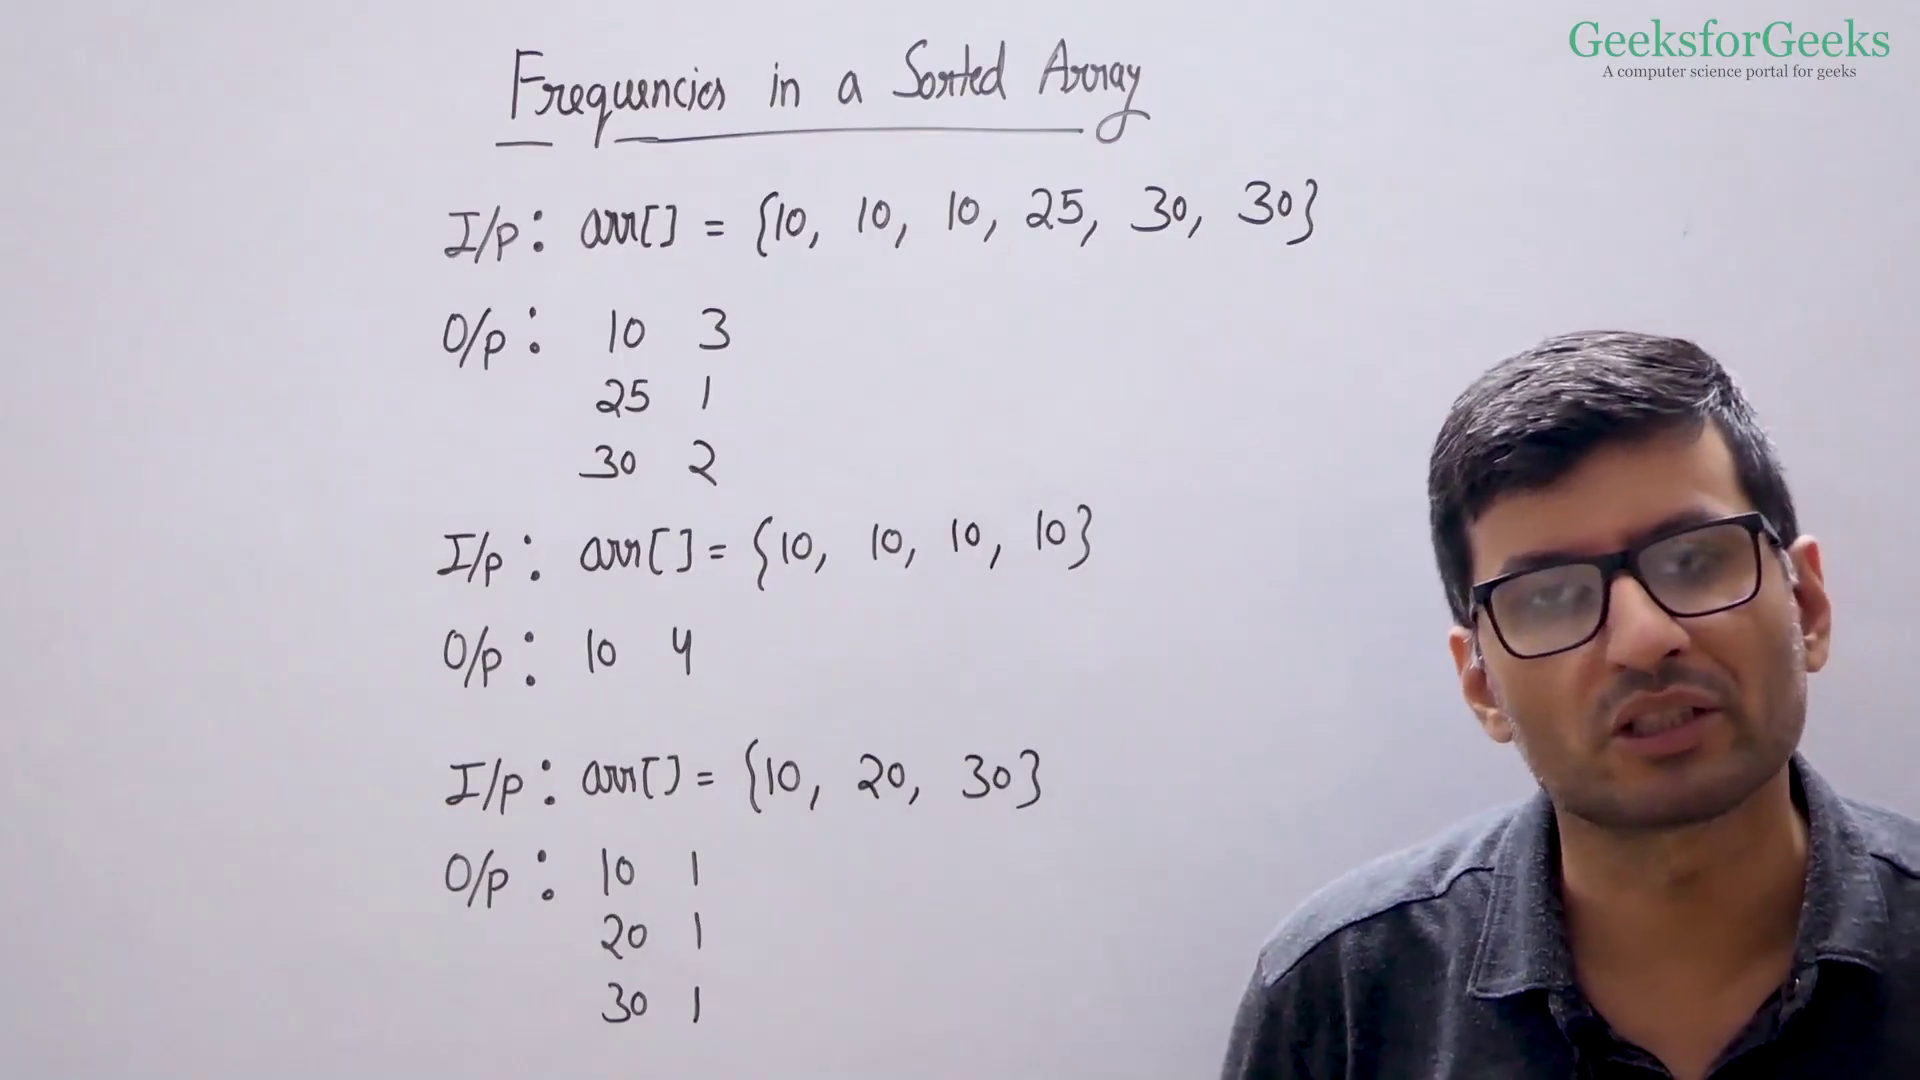 GeeksforGeeks
A computer science portal for geeks
Frequencies in a Sorted Array
I/p: arr[] = {10, 10, 10, 25, 30, 30}
O/p: 10 3
25 1
30 2
I/p: arr[] = {10, 10, 10, 10}
O/p: 10 4
I/p: arr[] = {10, 20, 30}
O/p: 10 1
20 1
30 1